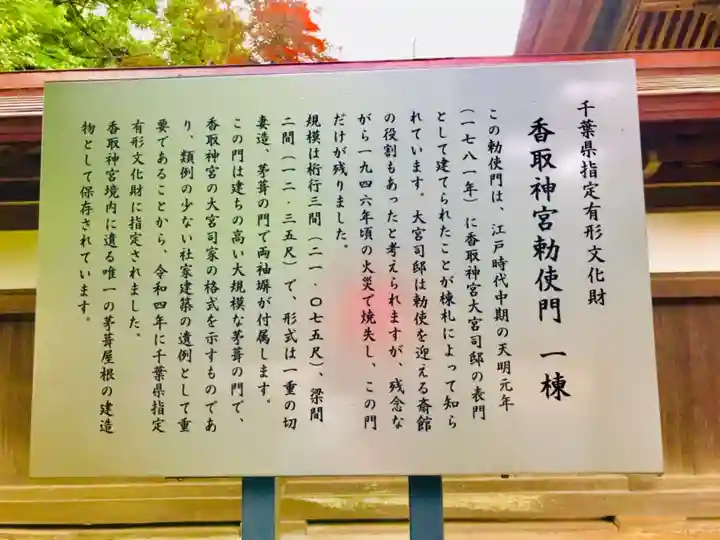 千葉県指定有形文化財
香取神宮勅使門 一棟
この勅使門は、江戸時代中期の天明元年
(一七八一年)に香取神宮大宮司邸の表門
として建てられたことが棟札によって知ら
れています。大宮司邸は勅使を迎える斎館
の役割もあったと考えられますが、残念な
がら一九四六年頃の火災で焼失し、この門
だけが残りました。
規模は桁行三間(二一・〇七五尺)、梁間
二間(一二・三五尺)で、形式は一重の切
妻造、茅葺の門で両袖塀が付属します。
この門は建ちの高い大規模な茅葺の門で、
香取神宮の大宮司家の格式を示すものであ
り、類例の少ない社家建築の遺例として重
要であることから、令和四年に千葉県指定
有形文化財に指定されました。
香取神宮境内に遺る唯一の茅葺屋根の建造
物として保存されています。